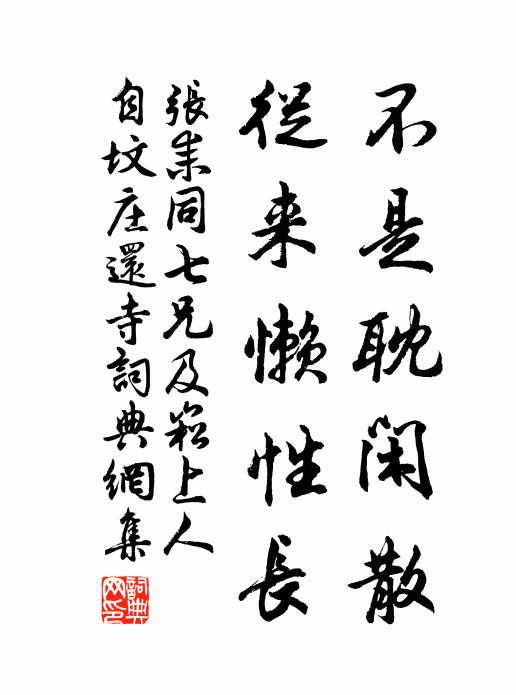 不是耽闲散
從来懶性長
張耒同七兄及崧上人
自坟庄還寺詞典網集
詞典
网印